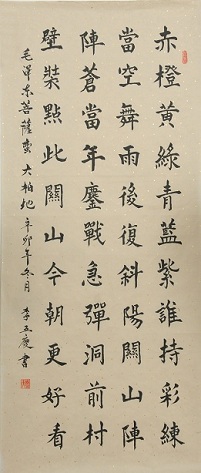 赤橙黃綠青藍紫誰持彩練
當空舞雨後復斜陽關山陣
陣蒼當年鏖戰急彈洞前村
壁裝點此關山今朝更好看
毛澤东菩薩蛮 大柏地 辛卯年冬月 李 慶書